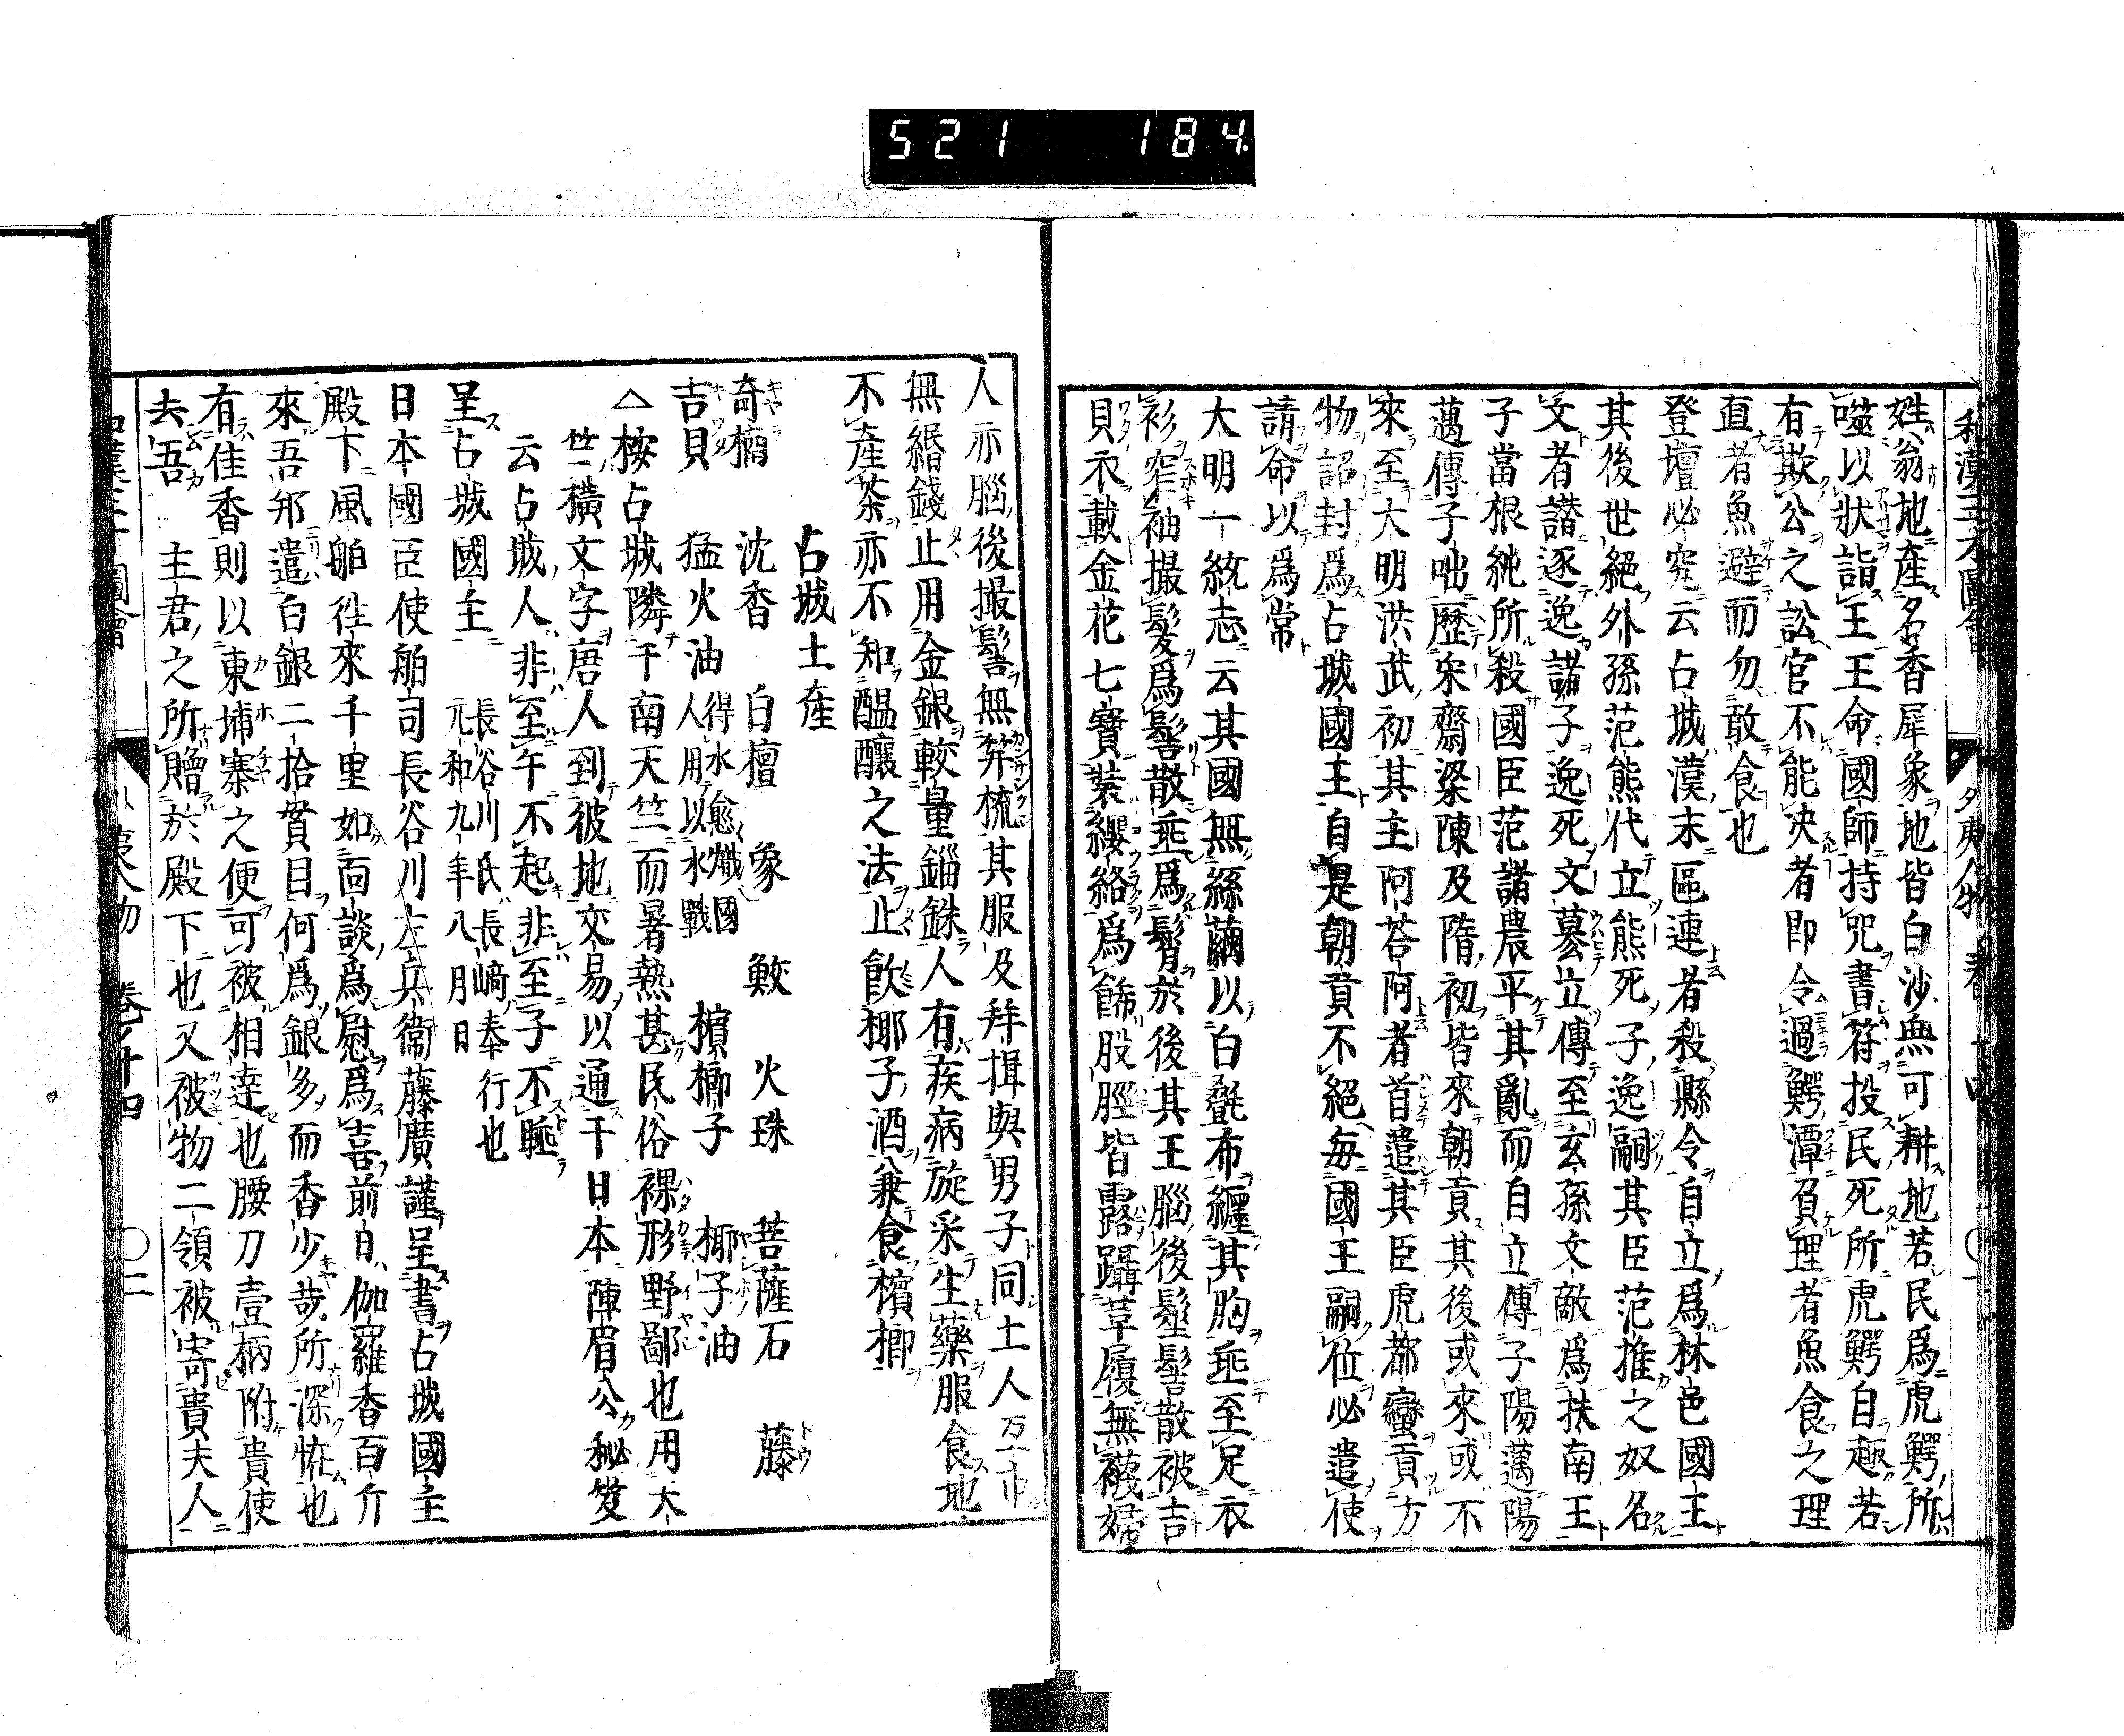 521 184.
和漢三才圖會
外夷人物 卷十四 〇一
姓翁地產名香犀象地皆白沙無可耕地若民爲虎鰐所
噬以狀詣王王命國師持咒書符投民死所虎鰐自趣若
有欺公之訟官不能決者即令過鰐潭負理者魚食之理
直者魚避而勿敢食也
登壇必究云占城漢末區連者殺縣令自立爲林邑國王
其後世絕外孫范熊代立熊死子逸嗣其臣范推之奴名
文者譖逐逸諸子逸死文募立傳至玄孫文敵爲扶南王
子當根純所殺國臣范諸農平其亂而自立傳子陽邁陽
邁傳子咄歷宋齊梁陳及隋初皆來朝貢其後或來或不
來至大明洪武初其主阿荅阿者首遣其臣虎都蠻貢方
物詔封爲占城國王自是朝貢不絕每國王嗣位必遣使
請命以爲常
大明一統志云其國無絲繭以白㲲布纏其胸垂至足衣
衫窄袖撮髮爲髻散垂爲鬌於後其王腦後髽髻散被吉
貝衣載金花七寶裝纓絡爲餙股脛皆露躡革履無襪婦
人亦腦後撮髻無笄梳其服及拜揖與男子同土人万一市
無緡錢止用金銀較量錙銖人有疾病旋采生藥服食地
不產茶亦不知醞釀之法止飮椰子酒兼食檳榔
占城土產
奇楠 沈香 白檀 象 鮫 火珠 菩薩石 藤
吉貝 猛火油 得水愈熾國人用以水戰 檳榔子 椰子油
△桉占城隣于南天竺而暑熱甚民俗裸形野鄙也用天
竺橫文字唐人到彼地交易以通于日本陣眉公秘笈
云占城人非至午不起非至子不睡
呈占城國主 長谷川氏長崎奉行也 元和九年八月日
日本國臣使舶司長谷川左兵衞藤廣謹呈書占城國主
殿下風舶徃來千里如面談爲慰爲喜前日伽羅香百斤
來吾邦遣白銀二拾貫目何爲銀多而香少哉所深恠也
有佳香則以東埔寨之便可被相逹也腰刀壹柄附貴使
去吾 主君之所贈於殿下也又被物二領被寄貴夫人
和漢三才圖會
外夷人物 卷之十四 〇二